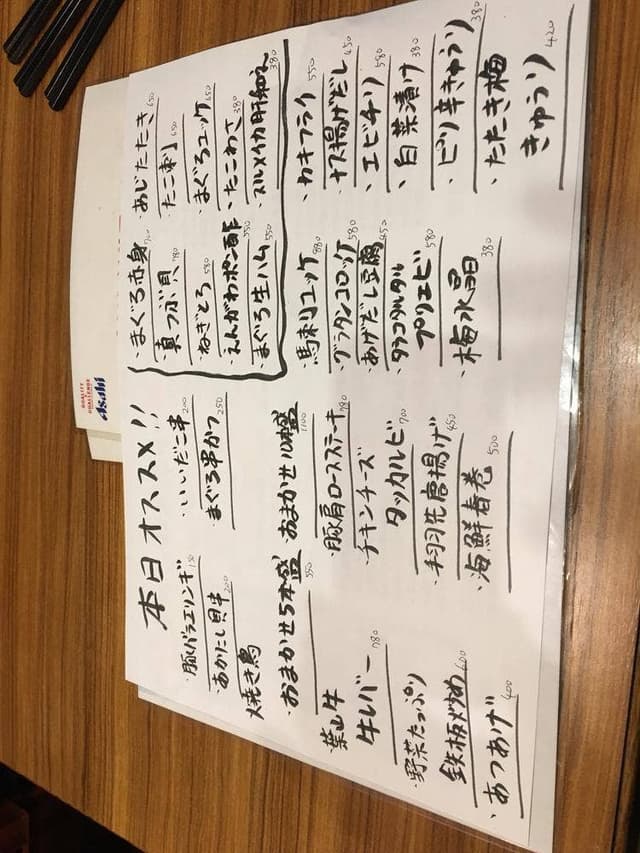 本日オススメ!!
・豚バラエリンギ 150
・いいだこ串 200
・あかにし貝串 200
・まぐろ串かつ 250
焼き鳥
・おまかせ5本盛 550
・おまかせ10本盛 1100
・葉山牛
牛レバー 780
・豚肩ロースステーキ 780
・野菜たっぷり
鉄板炒め 600
・チキンチーズ
タッカルビ 700
・あつあげ 400
・手羽先唐揚げ 450
・海鮮春巻 500
・まぐろ赤身 700
・あじたたき 650
・真つぶ貝 780
・たこ刺 650
・ねぎとろ 580
・まぐろユッケ 650
・えんがわポン酢 550
・たこわさ 380
・まぐろ生ハム 550
・スルメイカ肝和え 380
・馬刺ユッケ 880
・カキフライ 550
・グラタンコロッケ 580
・ナス揚げだし 450
・あげだし豆腐 450
・エビチリ 580
・タラコタルタル
プリエビ 580
・白菜漬け 380
・梅水晶 380
・ピリ辛きゅうり 380
・たたき梅
きゅうり 420
QUALITY & CHALLENGE
Asahi